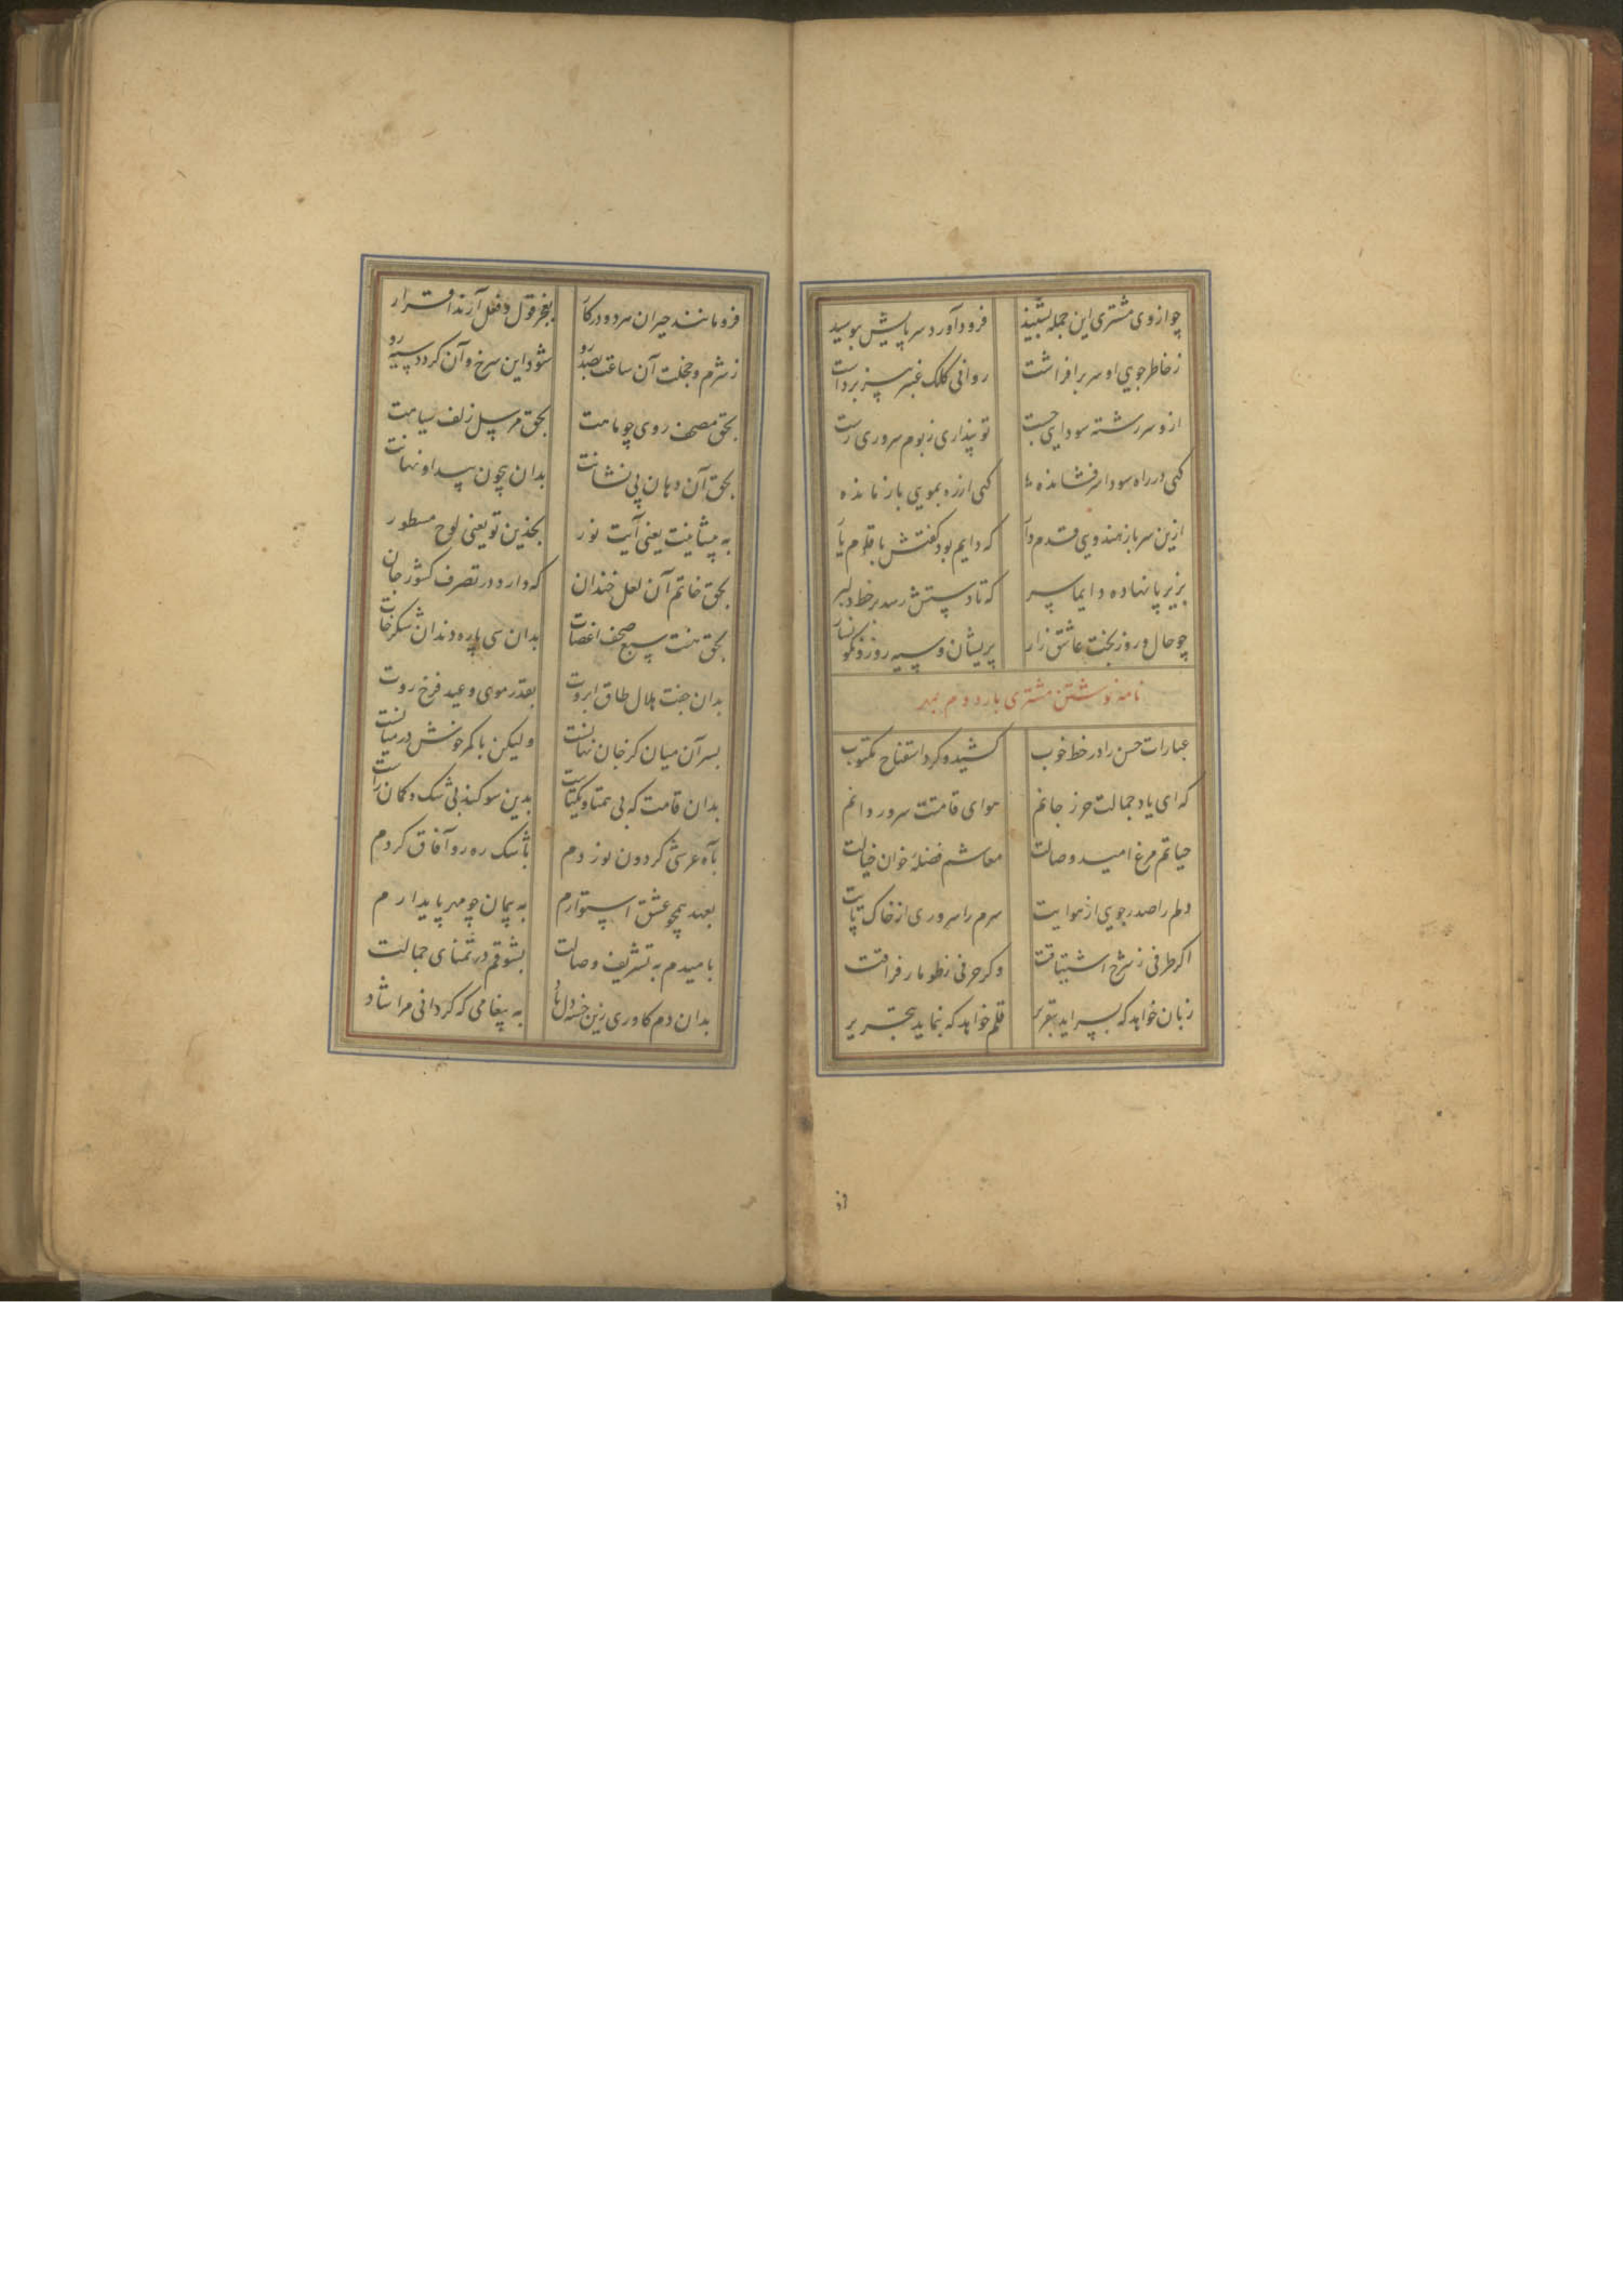 چو از وی مشتری این جمله بشنید فرود آورد سر پایش ببوسید
ز خاطر جویی او سر برافراشت روانی کلک عنبر بیز برداشت
ازو سر رشته سودایی جست تو پنداری ز بوم سروری رست
کهی در راه سودا سر فشانده کهی از ره بمویی باز مانده
ازین سرباز هندویی قدم دار که دایم بود کفتش با قلم یار
بزیر پا نهاده دایما سر که تا دستش رسد بر خط دلبر
چو حال و روز بخت عاشق زار پریشان و سیه روز و نکونسار
نامه نوشتن مشتری بار دوم بمهر
عبارات حسن را در خط خوب کشید و کرد استفتاح مکتوب
که ای یاد جمالت حرز جانم هوای قامتت سرو روانم
حیاتم مرغ امید وصالت معاشم فضله خوان خیالت
دلم را صد رجوی از هوایت سرم را سروری از خاک پایت
اکر طرفی ز شرح اشتیاقت و کر حرفی ز طومار فراقت
زبان خواهد که بسراید بتقریر قلم خواهد که بنماید بتحریر
فرو مانند حیران هر دو در کار بعجز قول و فعل آرند اقرار
ز شرم و خجلت آن ساعت بصد رو شود این سرخ و آن کردد سیه رو
بحق مصحف روی چو ماهت بحق مرسل زلف سیاهت
بحق آن دهان بی نشانت بدان بیچون پیدا و نهانت
به پیشانیت یعنی آیت نور بخدین تو یعنی لوح مسطور
بحق خاتم آن لعل خندان که دارد در تصرف کشور جان
بحق هفت سبع صحف اعضات بدان سی پاره دندان شکرخات
بدان جفت هلال طاق ابروت بقدر موی و عید فرخ روت
بسر آن میان کز جان نهانست ولیکن با کمر خونش در میانست
بدان قامت که بی همتا و یکتاست بدین سوکند بی شک و کمان راست
بآه عرش کردون نوردم باشک ره رو آفاق کردم
بعهد همچو عشق استوارم به پیمان چو مهر پایدارم
بامیدم به تشریف وصالت بشوقم در تمنای جمالت
بدان دم کاوری زین خسته دل یاد به پیغامی که کردانی مرا شاد